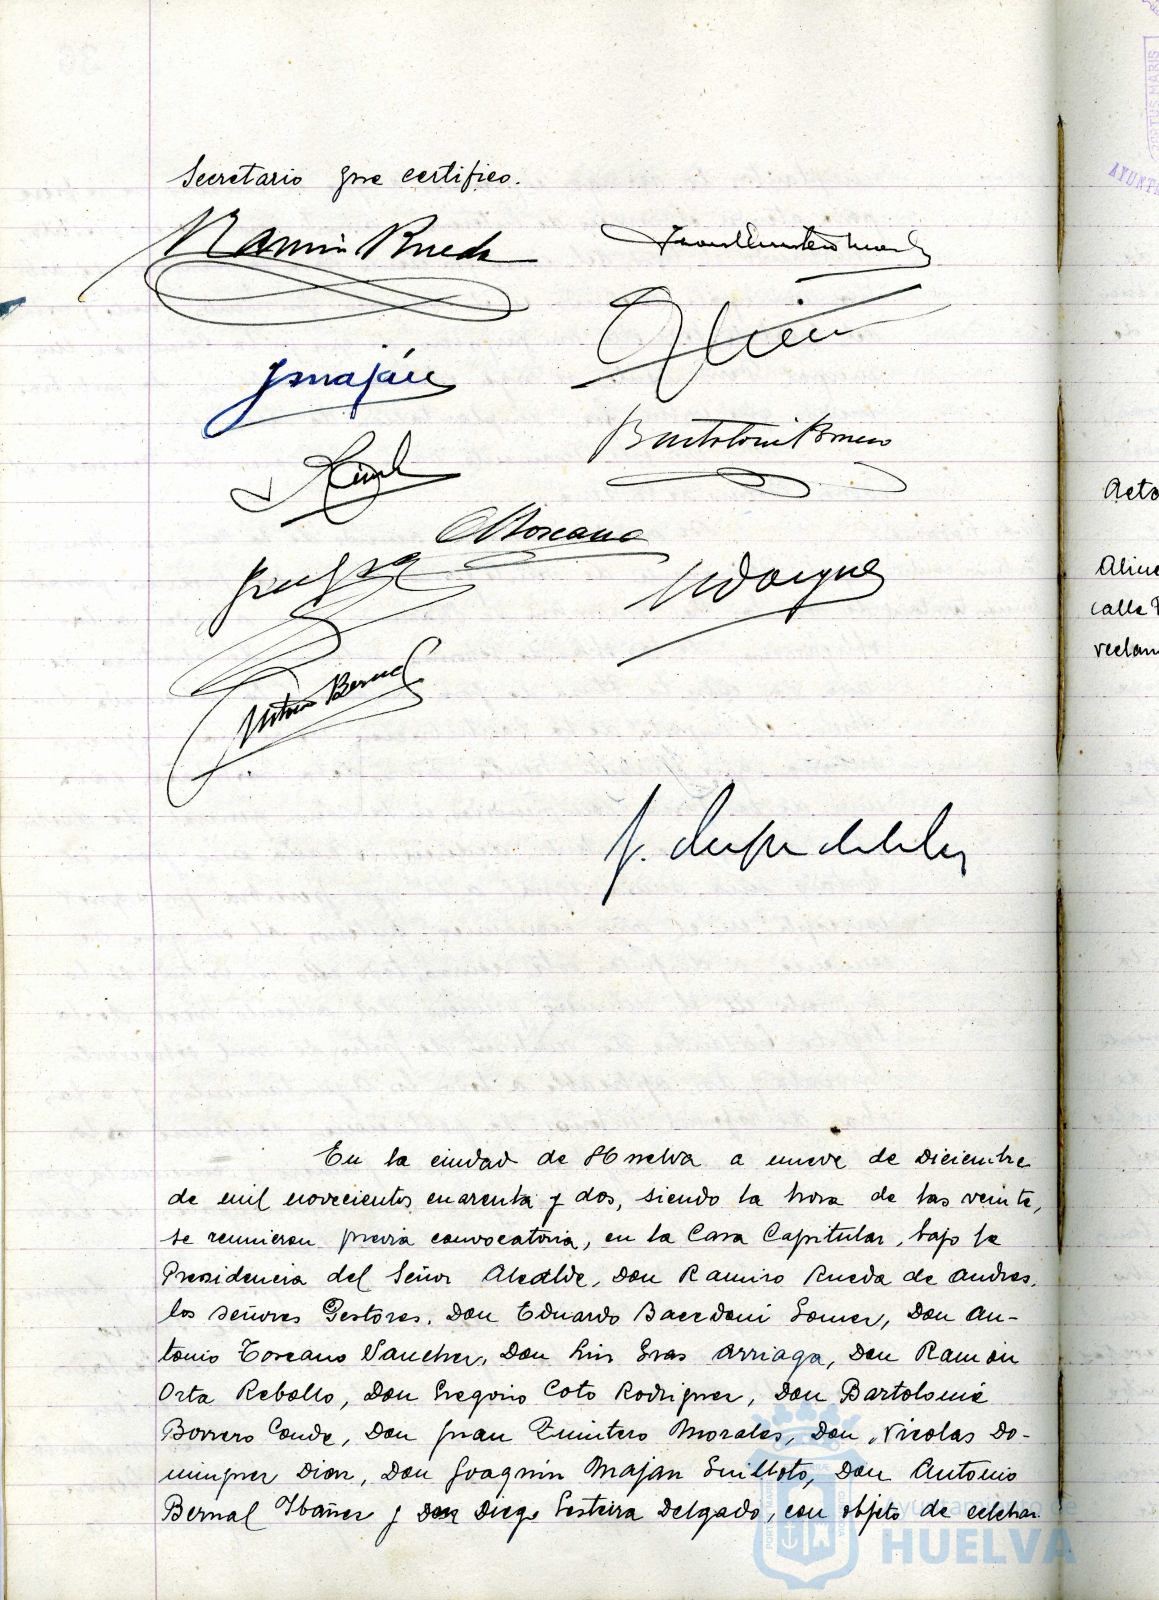 Secretario que certifico.
Ramiro Rueda
Juan Quintero Morales
JMaján
Bartolomé Borrero
AToscano
NDomguez
Antonio Bernal
En la ciudad de Huelva a nueve de Diciembre
de mil novecientos cuarenta y dos, siendo la hora de las veinte,
se reunieron previa convocatoria, en la Casa Capitular, bajo la
Presidencia del Señor Alcalde, Don Ramiro Rueda de Andres,
los señores Gestores, Don Eduardo Gomez, Don An-
tonio Toscano Sanchez, Don Luis Gras Arriaga, Don Ramón
Orta Rebollo, Don Gregorio Coto Rodriguez, Don Bartolomé
Borrero Conde, Don Juan Quintero Morales, Don Nicolas Do-
minguez Diaz, Don Joaquin Majan Guilloto, Don Antonio
Bernal Ibañez y Don Diego Sesteira Delgado, con objeto de celebrar
Ayuntamiento de
HUELVA
PORTUS MARIS
AYUNTA
Acto
Aline
calle
reclam